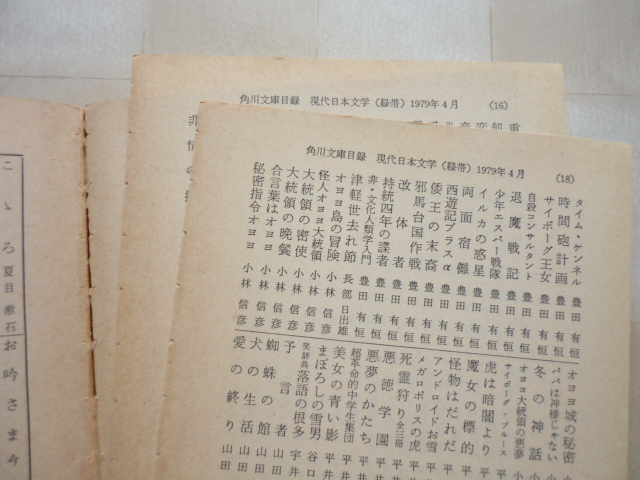 角川文庫目録 現代日本文学（緑帯）1979年4月 （16）
角川文庫目録 現代日本文学（緑帯）1979年4月 （18）
タイム・ケンネル 豊田 有恒
時間砲計画 豊田 有恒
サイボーグ王女 豊田 有恒
自殺コンサルタント 豊田 有恒
退魔戦記 豊田 有恒
少年エスパー戦隊 豊田 有恒
イルカの惑星 豊田 有恒
両面宿儺 豊田 有恒
西遊記プラスα 豊田 有恒
倭王の末裔 豊田 有恒
邪馬台国作戦 豊田 有恒
改体者 豊田 有恒
持統四年の諜者 豊田 有恒
非・文化人類学入門 豊田 有恒
津軽世去れ節 長部 日出雄
オヨヨ島の冒険 小林 信彦
怪人オヨヨ大統領 小林 信彦
大統領の密使 小林 信彦
大統領の晩餐 小林 信彦
合言葉はオヨヨ 小林 信彦
秘密指令オヨヨ 小林 信彦
オヨヨ城の秘密 小
パパは神様じゃない 小
冬の神話 小
オヨヨ大統領の悪夢 小
サイボーグ・ブルース 平
虎は暗闇より 平
魔女の標的 平
怪物はだれだ 平
アンドロイドお雪 平
メガロポリスの虎 平
死霊狩り 全三冊 平井
悪徳学園 平井
悪夢のかたち 平井
超革命的中学生集団 平井
美女の青い影 平井
まぼろしの雪男 谷口
笑辞典 落語の根多 宇井
予言者 山田
蜘蛛の館 山田
犬の生活 山田
愛の終り 山田
こゝろ 夏目 漱石
お吟さま 今